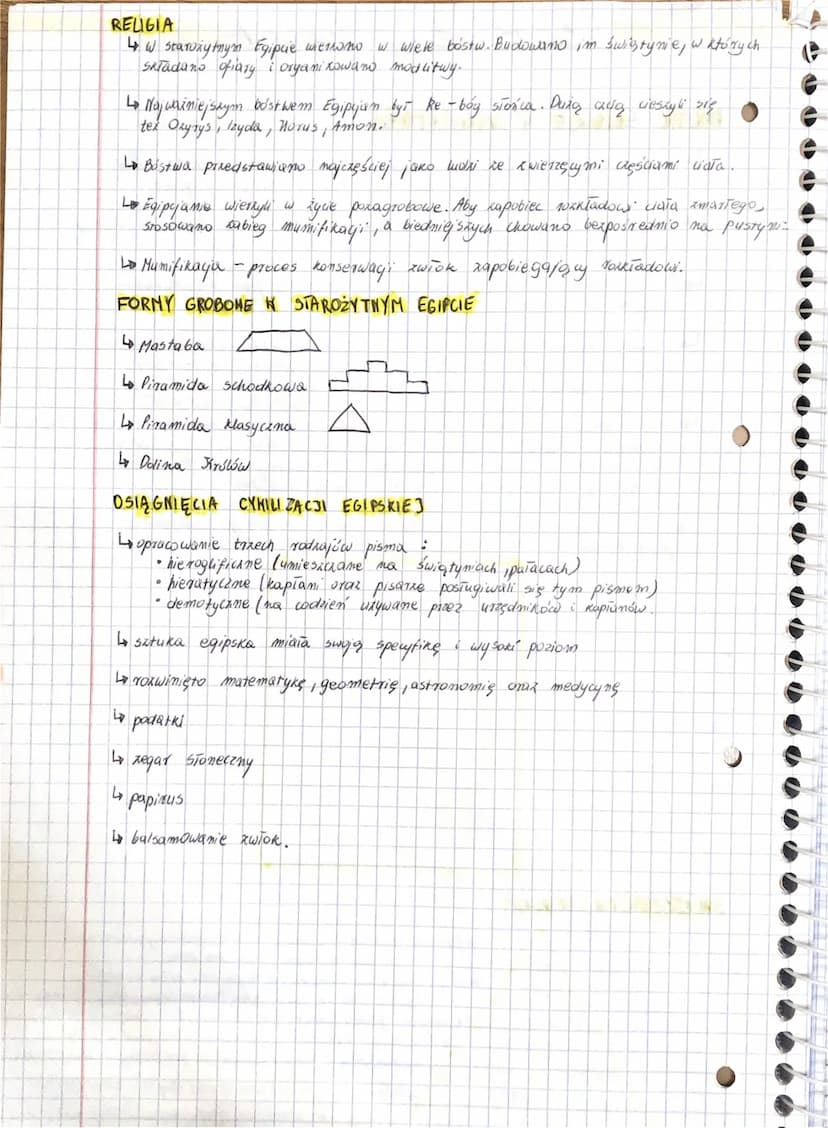 RELIGIA
↳ W starożytnym Egipcie wierzono w wiele bóstw. Budowano im świątynie, w których
składano ofiary i organizowano modlitwy.
↳ Najważniejszym bóstwem Egipcjan był Re - bóg słońca. Dużą czcią cieszyli się
też Ozyrys, Izyda, Horus, Amon.
↳ Bóstwa przedstawiano najczęściej jako ludzi ze zwierzęcymi częściami ciała.
↳ Egipcjanie wierzyli w życie pozagrobowe. Aby zapobiec rozkładowi ciała zmarłego,
stosowano zabieg mumifikacji, a biedniejszych chowano bezpośrednio na pustyni.
↳ Mumifikacja - proces konserwacji zwłok zapobiegający rozkładowi.
FORMY GROBOWE W STAROŻYTNYM EGIPCIE
↳ Mastaba
↳ Piramida schodkowa
↳ Piramida klasyczna
↳ Dolina Królów
OSIĄGNIĘCIA CYWILIZACJI EGIPSKIEJ
↳ opracowanie trzech rodzajów pisma :
• hieroglificzne (umieszczane na świątyniach, pałacach)
• hieratyczne (kapłani oraz pisarze posługiwali się tym pismem)
• demotyczne (na codzień używane przez urzędników i kapłanów.
↳ sztuka egipska miała swoją specyfikę i wysoki poziom
↳ rozwinięto matematykę, geometrię, astronomię oraz medycynę
↳ podatki
↳ zegar słoneczny
↳ papirus
↳ balsamowanie zwłok.